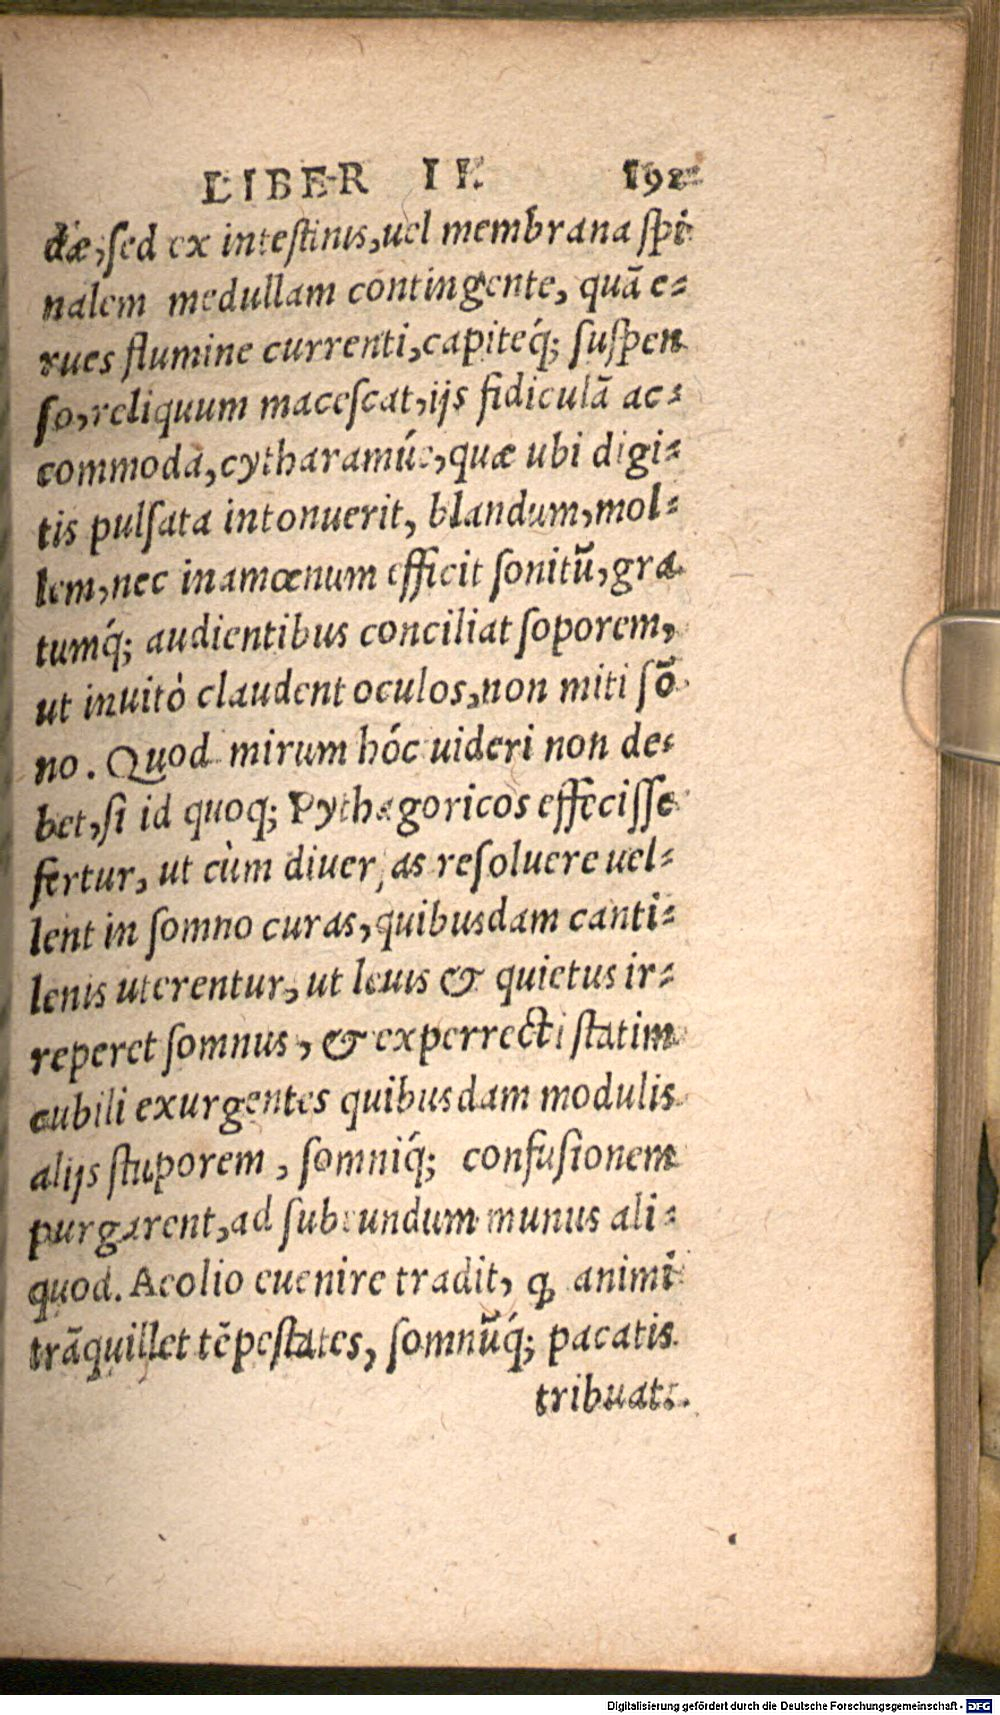 LIBER II. 192
dæ, sed ex intestinis, uel membrana spi
nalem medullam contingente, quā e-
rues flumine currenti, capiteq́; suspen
so, reliquum macescat, ijs fidiculā ac-
commoda, cytharamúe, quæ ubi digi-
tis pulsata intonuerit, blandum, mol-
lem, nec inamœnum efficit sonitū, gra
tumq́; audientibus conciliat soporem,
ut inuitò claudent oculos, non miti sō
no. Quod mirum hóc uideri non de-
bet, si id quoq; Pythagoricos effecisse
fertur, ut cùm diuersas resoluere uel-
lent in somno curas, quibusdam canti-
lenis uterentur, ut leuis & quietus ir-
reperet somnus, & experrecti statim
cubili exurgentes quibusdam modulis
alijs stuporem, somniq́; confusionem
purgarent, ad subeundum munus ali-
quod. Aeolio euenire tradit, ꝙ animi
trāquillet tēpestates, somnūq́; pacatis
tribuat.
Digitalisierung gefördert durch die Deutsche Forschungsgemeinschaft - DFG